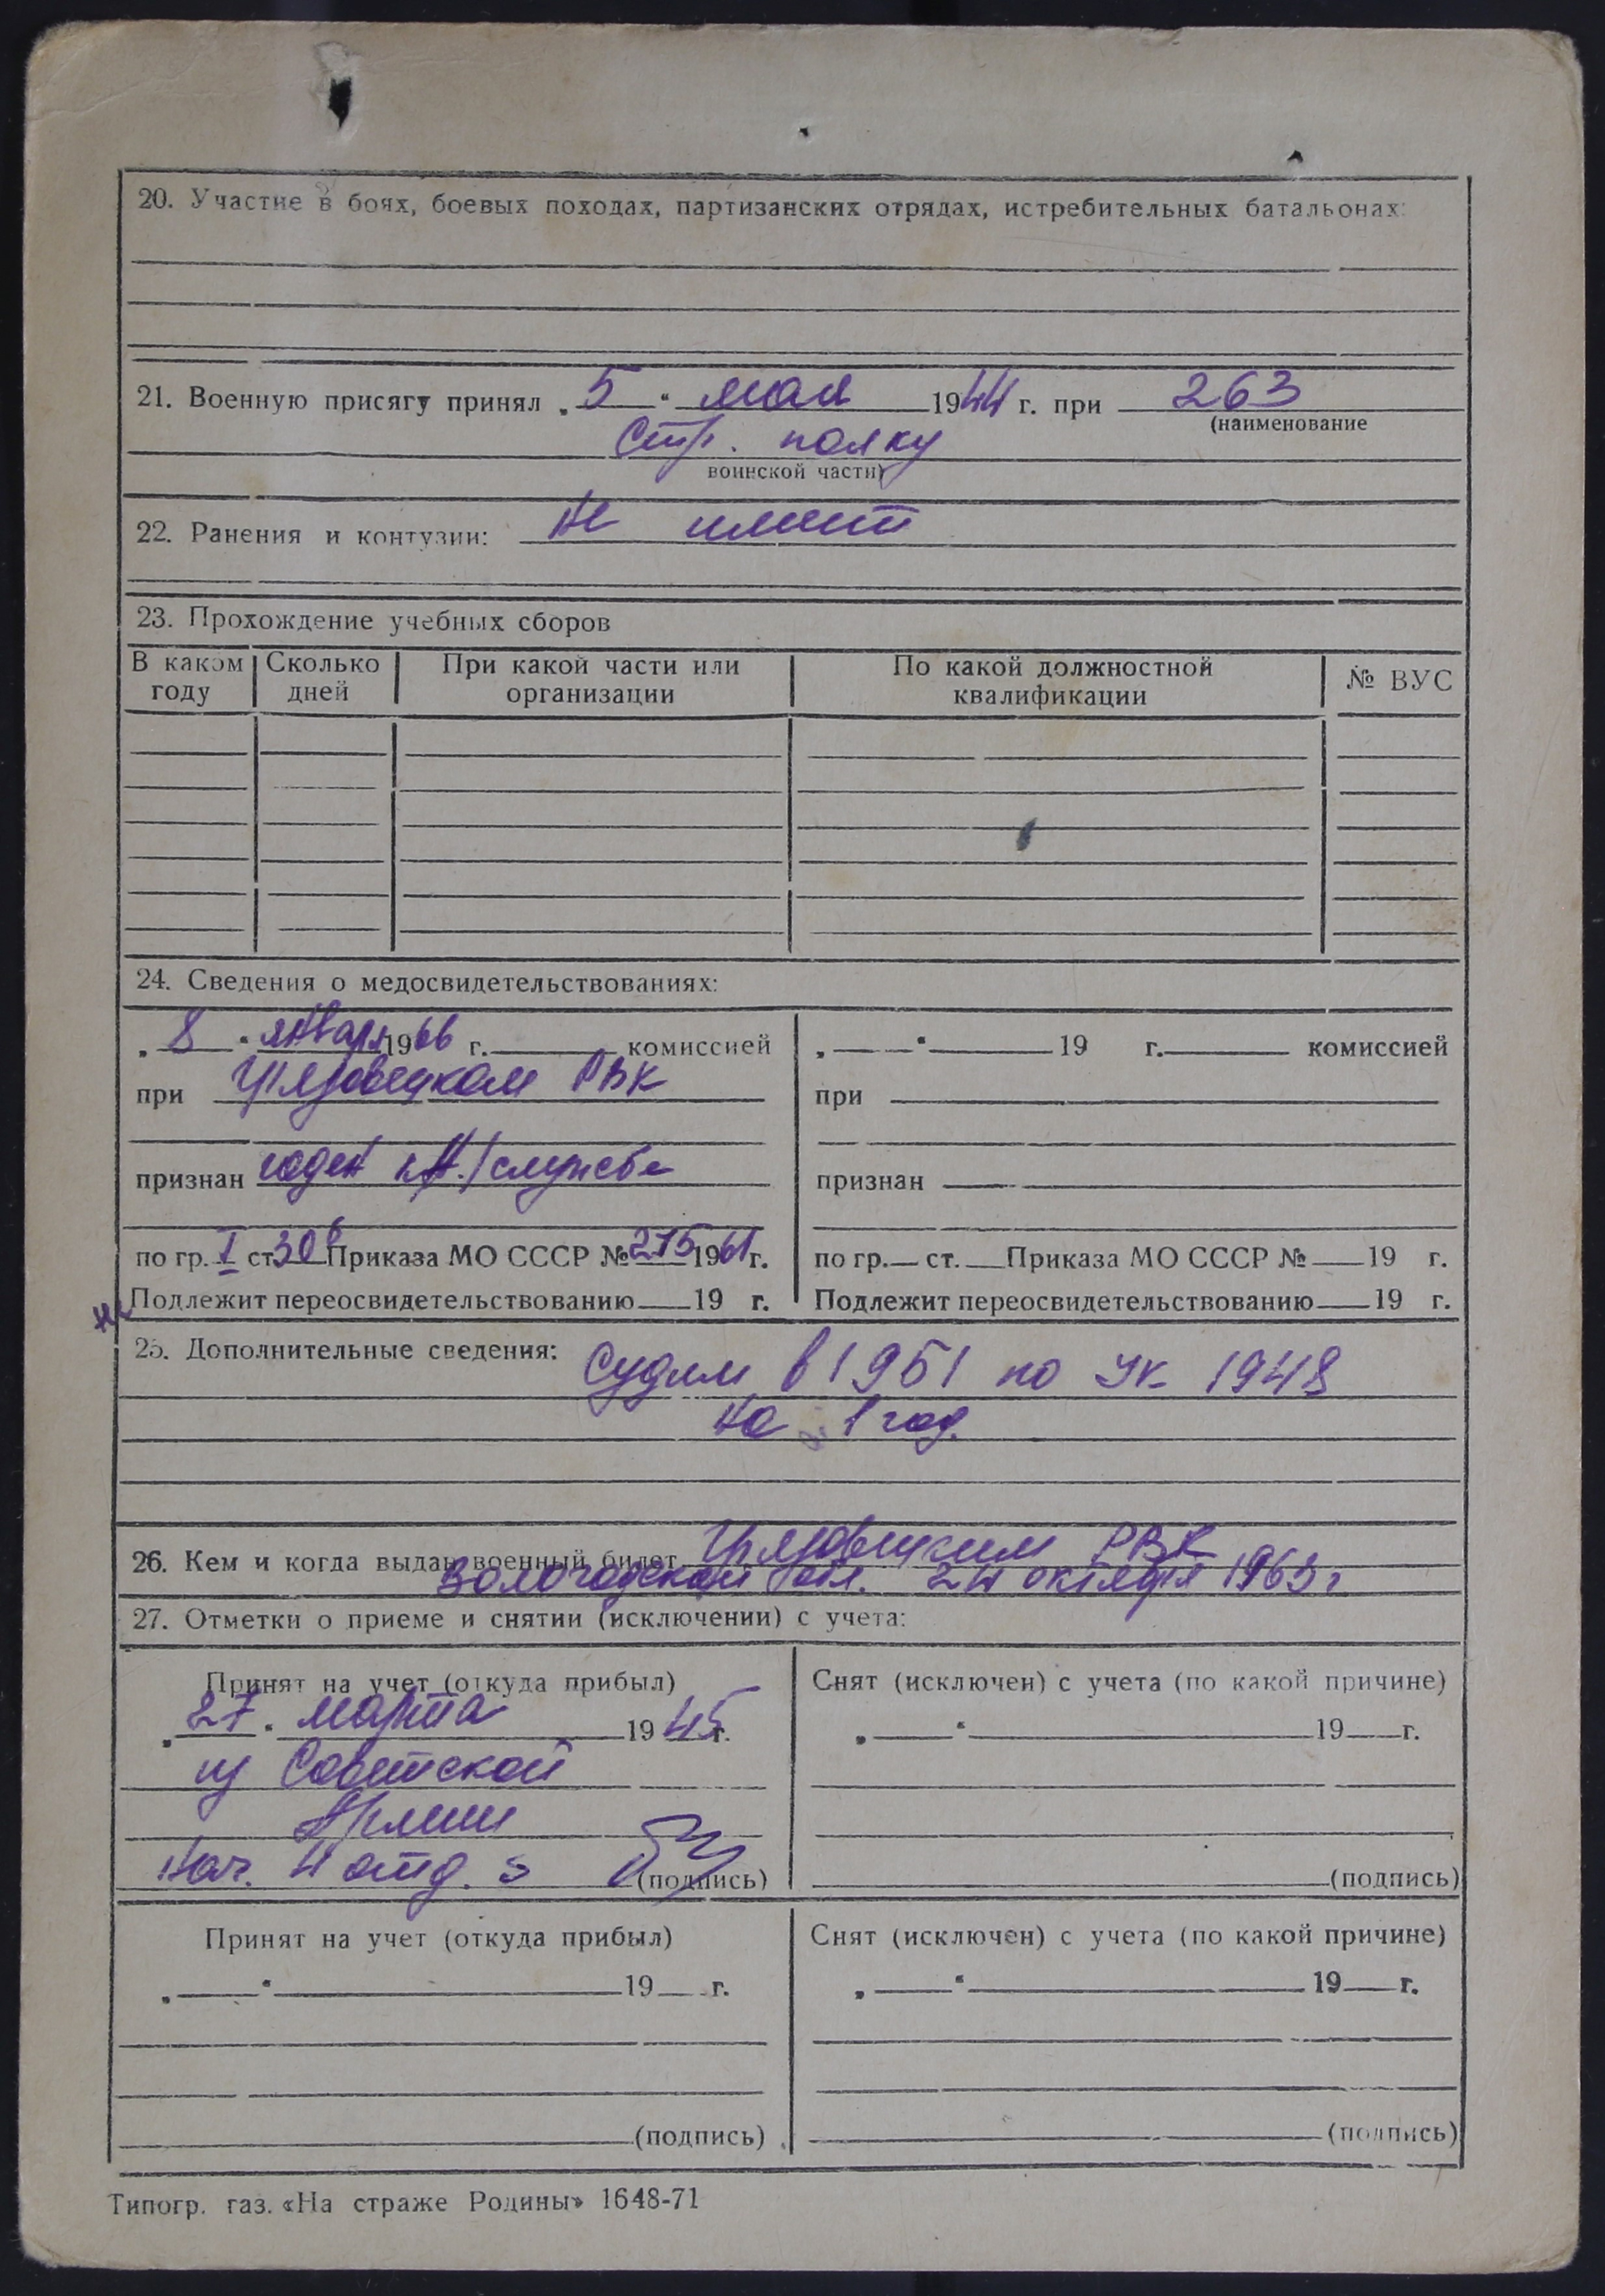 20. Участие в боях, боевых походах, партизанских отрядах, истребительных батальонах:
21. Военную присягу принял „5“ мая 1944 г. при 263
(наименование
стр. полку
воинской части)
22. Ранения и контузии: не имеет
23. Прохождение учебных сборов
В каком году Сколько дней При какой части или организации По какой должностной квалификации № ВУС
24. Сведения о медосвидетельствованиях:
„8“ января 1966 г. комиссией
при Грязовецком РВК
признан годен к служебе
по гр. I ст 30 Приказа МО СССР № 275 1961 г.
не Подлежит переосвидетельствованию 19 г.
„ “ 19 г. комиссией
при
признан
по гр. ст. Приказа МО СССР № 19 г.
Подлежит переосвидетельствованию 19 г.
25. Дополнительные сведения: Судим в 1951 по УК 1948
на 1 год.
26. Кем и когда выдан военный билет Грязовецким РВК
Вологодской обл. 24 октября 1963 г
27. Отметки о приеме и снятии (исключении) с учета:
Принят на учет (откуда прибыл)
„27“ марта 1945 г.
из Советской
Армии
Нач. 4 отд.
(подпись)
Снят (исключен) с учета (по какой причине)
„ “ 19 г.
(подпись)
Принят на учет (откуда прибыл)
„ “ 19 г.
(подпись)
Снят (исключен) с учета (по какой причине)
„ “ 19 г.
(подпись)
Типогр. газ. «На страже Родины» 1648-71